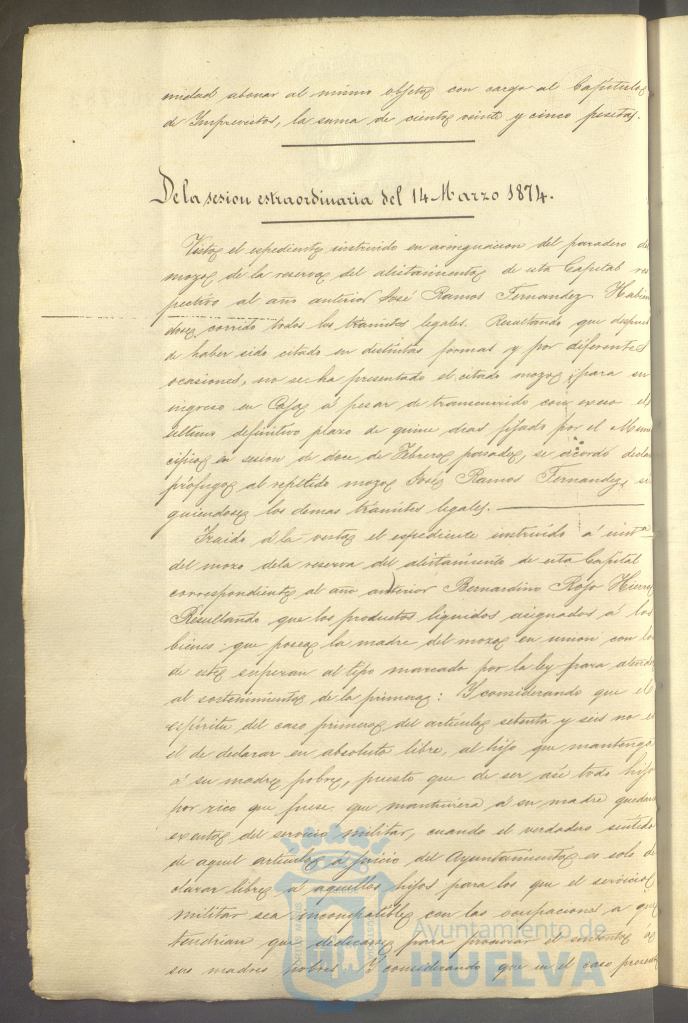 nidad abonar al mismo objeto con cargo al Capitulo
de Imprevistos, la suma de ciento veinte y cinco pesetas.
De la sesion estraordinaria del 14 Marzo 1874.
Visto el espediente instruido en averiguacion del paradero del
mozo de la reserva del alistamiento de esta Capital res
pectivo al año anterior José Ramos Fernandez. Habien
dose corrido todos los trámites legales. Resultando que despues
de haber sido citado en distintas formas y por diferentes
ocasiones, no se ha presentado el citado mozo para su
ingreso en Caja á pesar de transcurrido con exeso el
último definitivo plazo de quince dias fijado por el Muni
cipio en sesion de doce de Febrero pasado, se acordó declarar
prófugo al repetido mozo José Ramos Fernandez, si
guiendose los demas trámites legales.
Traido á la vista el espediente instruido á instª
del mozo de la reserva del alistamiento de esta Capital
correspondiente al año anterior Bernardino Rojo Hierro
Resultando que los productos liquidos asignados á los
bienes que posee la madre del mozo en union con los
de este superan al tipo marcado por la ley para atender
al sostenimiento de la primera: Y considerando que el
espiritu del caso primero del articulo setenta y seis no es
el de declarar en absoluto libre, al hijo que mantenga
á su madre pobre, puesto que de ser asi todo hijo
por rico que fuese que mantuviera á su madre quedaria
exento del servicio militar, cuando el verdadero sentido
de aquel articulo á juicio del Ayuntamiento es solo de
clarar libre á aquellos hijos para los que el servicio
militar sea incompatible con las ocupaciones a que
tendrian que dedicarse para procurar el sustento de
sus madres pobres Y considerando que en el caso presente
Ayuntamiento de
HUELVA